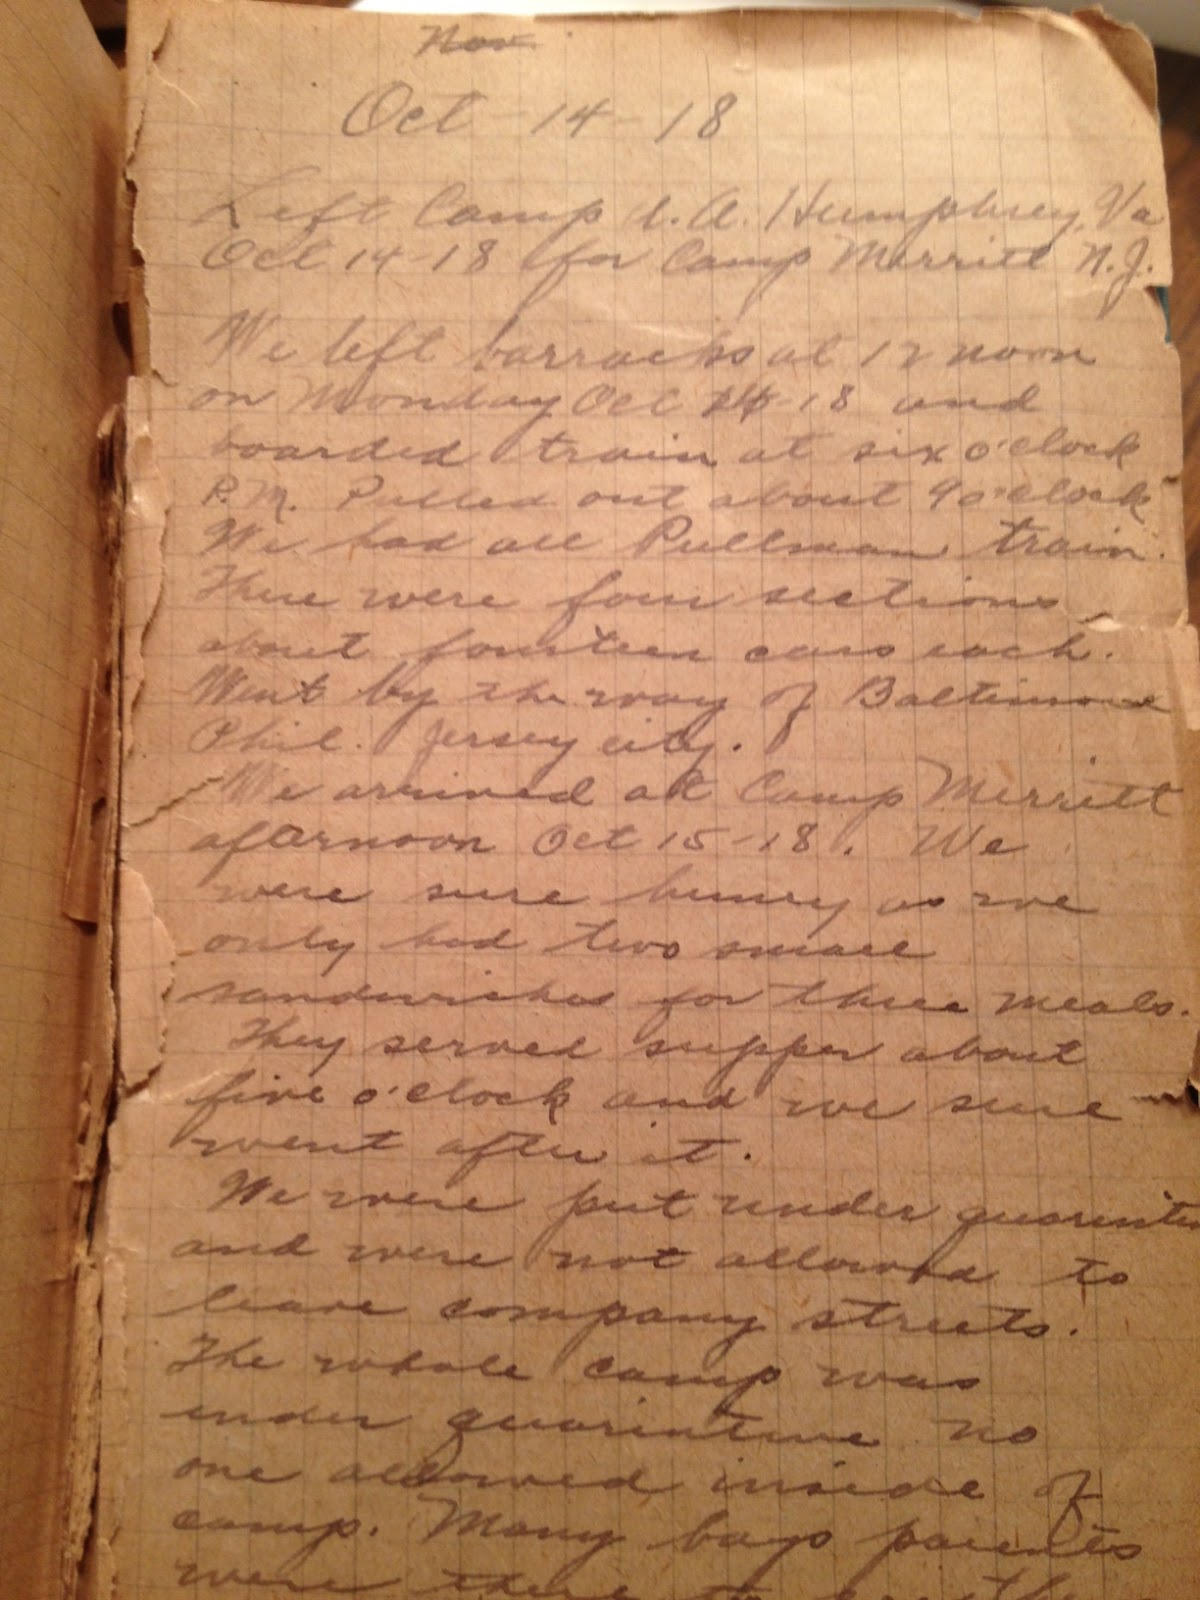 Nov
Oct - 14 - 18
Left Camp A. A. Humphrey, Va
Oct 14-18 for Camp Merritt N.J.
We left barracks at 12 noon
on Monday Oct 14-18 and
boarded train at six o'clock
P.M. Pulled out about 9 o'clock
We had all Pullman train.
There were four sections
about fourteen cars each.
Went by the way of Baltimore
Phil. Jersey city.
We arrived at Camp Merritt
afternoon Oct 15-18. We
were sure hungry as we
only had two small
sandwiches for three meals.
They served supper about
five o'clock and we sure
went after it.
We were put under quarintine
and were not allowed to
leave company streets.
The whole camp was
under quarintine no
one allowed inside of
camp. Many boys parents
were there to see